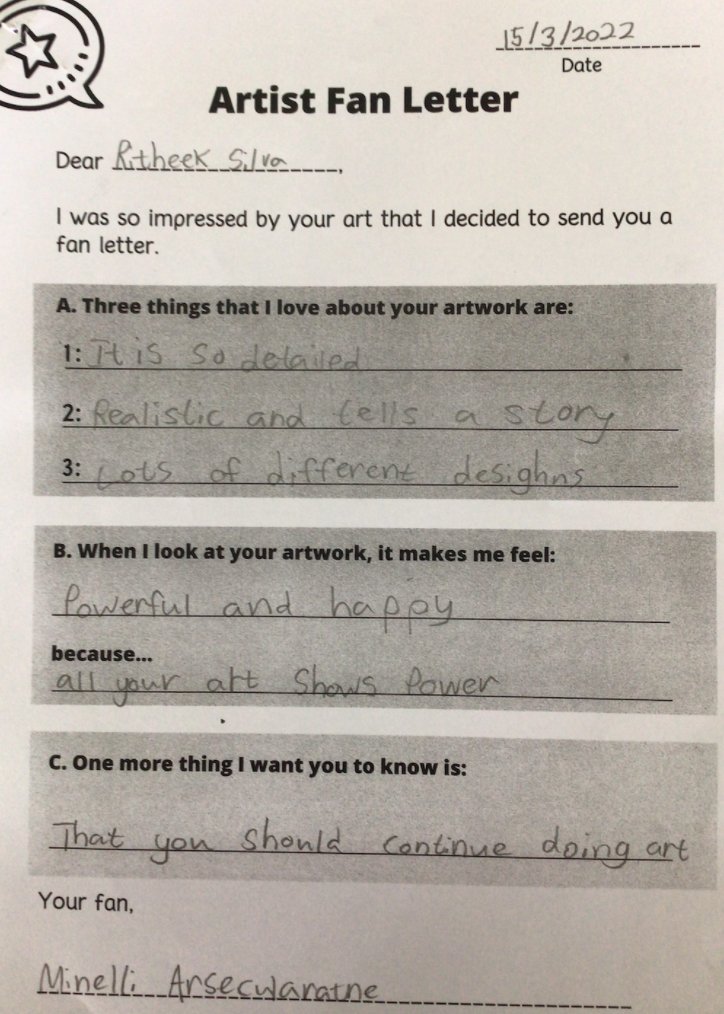 15/3/2022
Date
Artist Fan Letter
Dear Ritheek Silva,
I was so impressed by your art that I decided to send you a
fan letter.
A. Three things that I love about your artwork are:
1: It is so detailed
2: Realistic and tells a story
3: Lots of different desighns
B. When I look at your artwork, it makes me feel:
Powerful and happy
because...
all your art shows Power
C. One more thing I want you to know is:
That you should continue doing art
Your fan,
Minelli Arsecwaratne